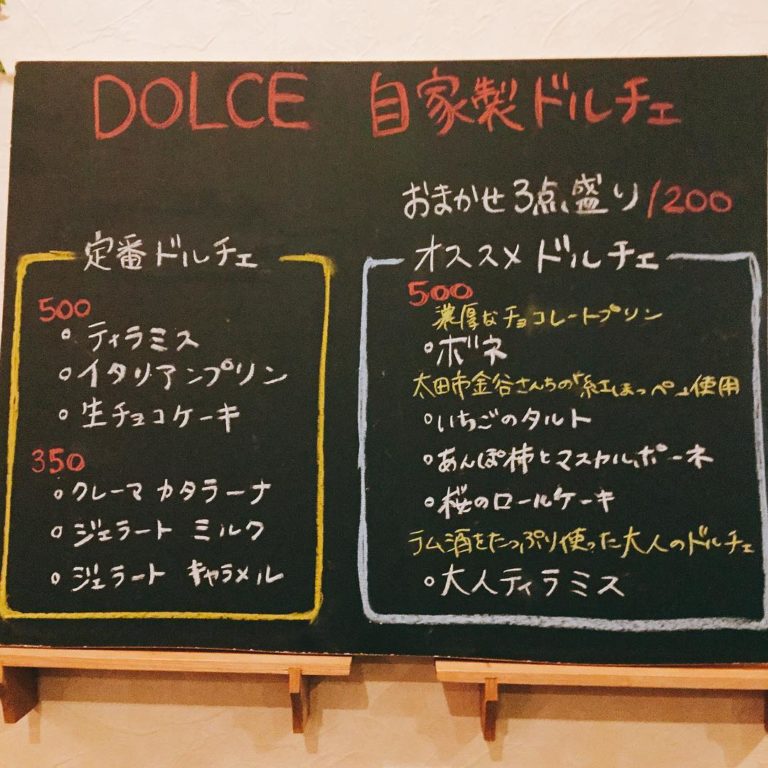 DOLCE 自家製ドルチェ
おまかせ3点盛り/1200
定番ドルチェ
500
・ティラミス
・イタリアンプリン
・生チョコケーキ
350
・クレーマ カタラーナ
・ジェラート ミルク
・ジェラート キャラメル
オススメ ドルチェ
500
濃厚なチョコレートプリン
・ボネ
太田市金谷さんちの「紅ほっぺ」使用
・いちごのタルト
・あんぽ柿とマスカルポーネ
・桜のロールケーキ
ラム酒をたっぷり使った大人のドルチェ
・大人ティラミス